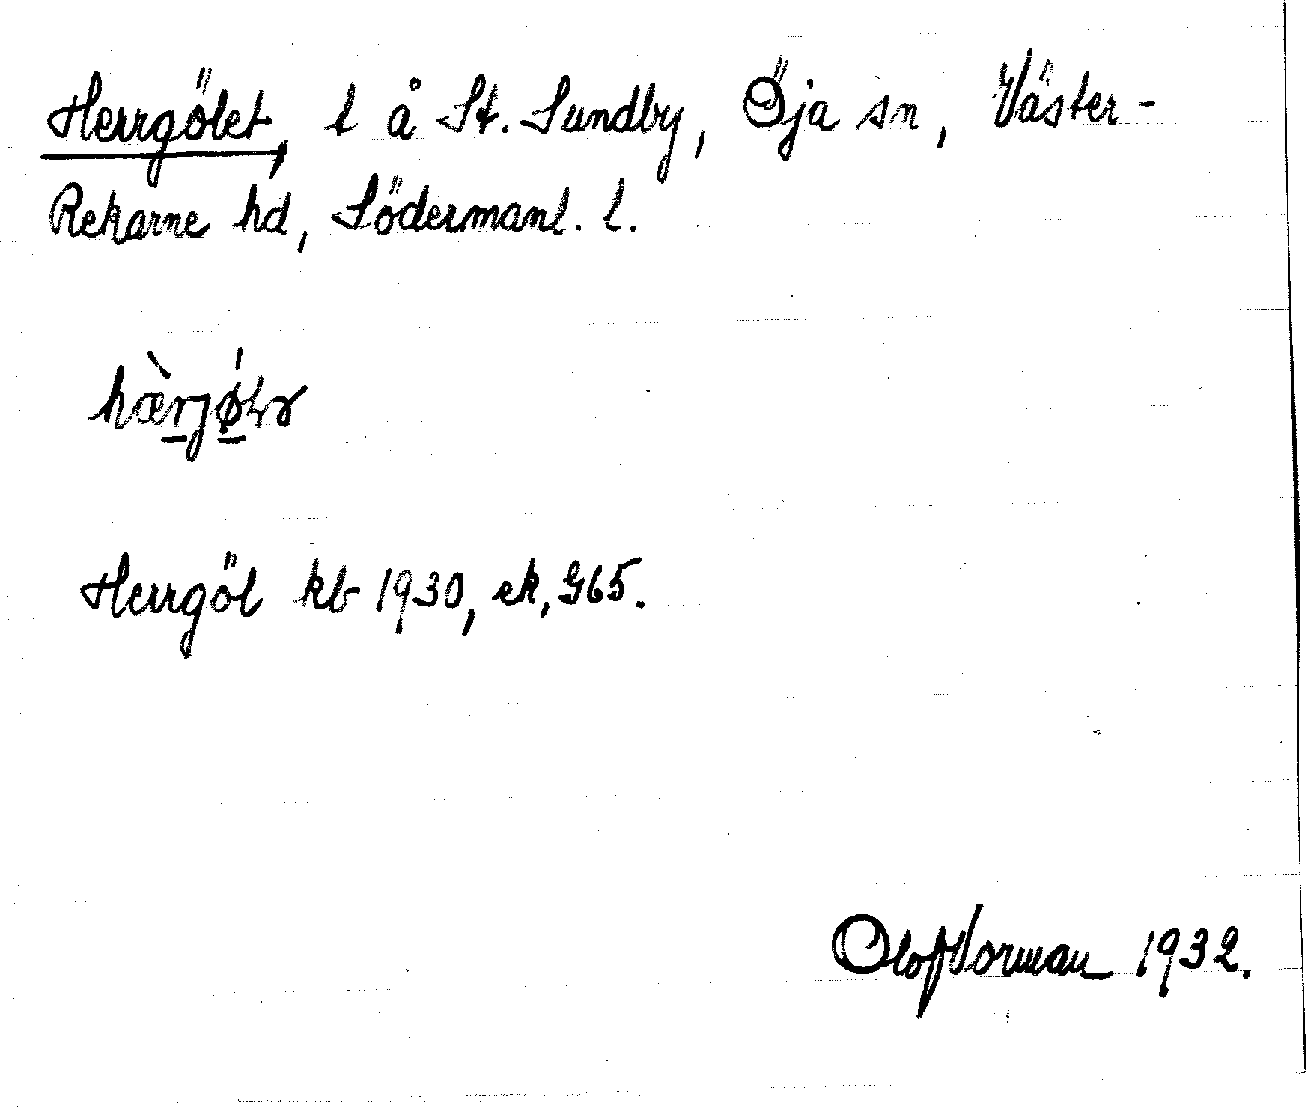 Herrgölet, l å St. Sundby, Öja sn, Väster-
Rekarne hd, Södermanl. l.
Herrgöl kb 1930, ek, G65.
Olof Norman 1932.